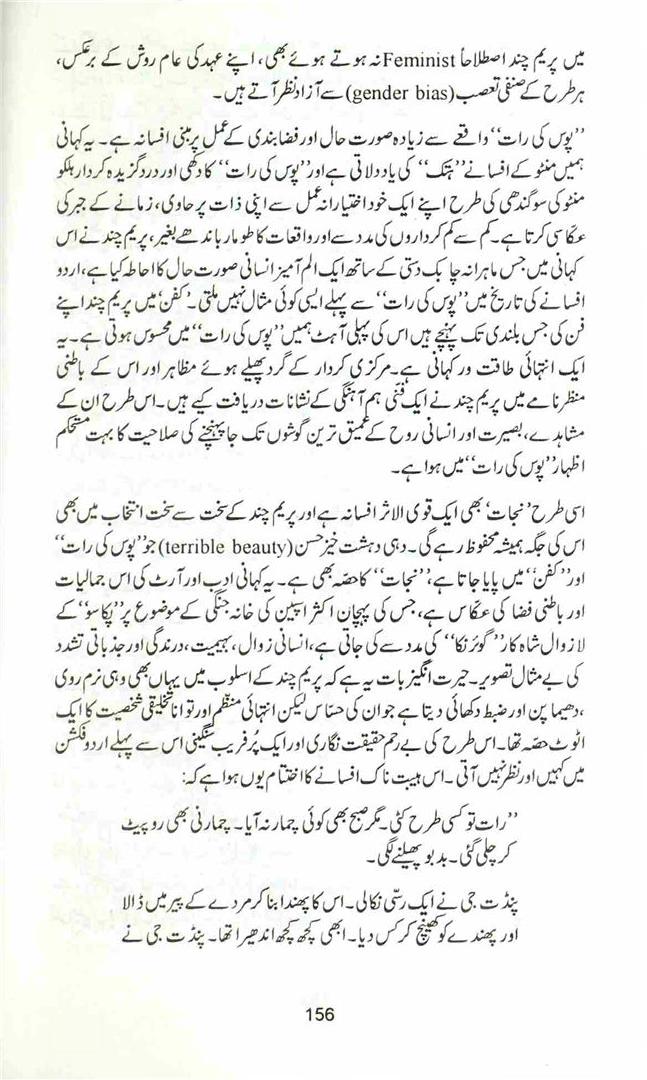 میں پریم چند اصطلاحاً Feminist نہ ہوتے ہوئے بھی، اپنے عہد کی عام روش کے برعکس،
ہر طرح کے صنفی تعصب (gender bias) سے آزاد نظر آتے ہیں۔
”پوس کی رات“ واقعے سے زیادہ صورت حال اور فضا بندی کے عمل پر مبنی افسانہ ہے۔ یہ کہانی
ہمیں منٹو کے افسانے ”ہتک“ کی یاد دلاتی ہے اور ”پوس کی رات“ کا دکھی اور درد گزیدہ کردار ہلکو
منٹو کی سوگندھی کی طرح اپنے ایک خود اختیارانہ عمل سے اپنی ذات پر حاوی، زمانے کے جبر کی
عکاسی کرتا ہے۔ کم سے کم کرداروں کی مدد سے اور واقعات کا طومار باندھے بغیر، پریم چند نے اس
کہانی میں جس ماہرانہ چابک دستی کے ساتھ ایک الم آمیز انسانی صورت حال کا احاطہ کیا ہے، اردو
افسانے کی تاریخ میں ”پوس کی رات“ سے پہلے ایسی کوئی مثال نہیں ملتی۔ ’کفن‘ میں پریم چند اپنے
فن کی جس بلندی تک پہنچے ہیں اس کی پہلی آہٹ ہمیں ”پوس کی رات“ میں محسوس ہوتی ہے۔ یہ
ایک انتہائی طاقت ور کہانی ہے۔ مرکزی کردار کے گرد پھیلے ہوئے مظاہر اور اس کے باطنی
منظر نامے میں پریم چند نے ایک فنّی ہم آہنگی کے نشانات دریافت کیے ہیں۔ اس طرح ان کے
مشاہدے، بصیرت اور انسانی روح کے عمیق ترین گوشوں تک جا پہنچنے کی صلاحیت کا بہت مستحکم
اظہار ”پوس کی رات“ میں ہوا ہے۔
اسی طرح ’نجات‘ بھی ایک قوی الاثر افسانہ ہے اور پریم چند کے سخت سے سخت انتخاب میں بھی
اس کی جگہ ہمیشہ محفوظ رہے گی۔ وہی دہشت خیز حسن (terrible beauty) جو ”پوس کی رات“
اور ”کفن“ میں پایا جاتا ہے، ”نجات“ کا حصّہ بھی ہے۔ یہ کہانی ادب اور آرٹ کی اس جمالیات
اور باطنی فضا کی عکّاس ہے، جس کی پہچان اکثر اسپین کی خانہ جنگی کے موضوع پر ”پکاسو“ کے
لازوال شاہ کار ”گوئرنکا“ کی مدد سے کی جاتی ہے، انسانی زوال، بہیمیت، درندگی اور جذباتی تشدد
کی بے مثال تصویر۔ حیرت انگیز بات یہ ہے کہ پریم چند کے اسلوب میں یہاں بھی وہی نرم روی
، دھیما پن اور ضبط دکھائی دیتا ہے جو ان کی حسّاس لیکن انتہائی منظّم اور توانا تخلیقی شخصیت کا ایک
اٹوٹ حصّہ تھا۔ اس طرح کی بے رحم حقیقت نگاری اور ایک پُر فریب سنگینی اس سے پہلے اردو فکشن
میں کہیں اور نظر نہیں آتی۔ اس ہیبت ناک افسانے کا اختتام یوں ہوا ہے کہ:
”رات تو کسی طرح کٹی۔ مگر صبح بھی کوئی چمار نہ آیا۔ چمارنی بھی رو پیٹ
کر چلی گئی۔ بدبو پھیلنے لگی۔
پنڈت جی نے ایک رسّی نکالی۔ اس کا پھندا بنا کر مردے کے پیر میں ڈالا
اور پھندے کو کھینچ کر کس دیا۔ ابھی کچھ کچھ اندھیرا تھا۔ پنڈت جی نے
156